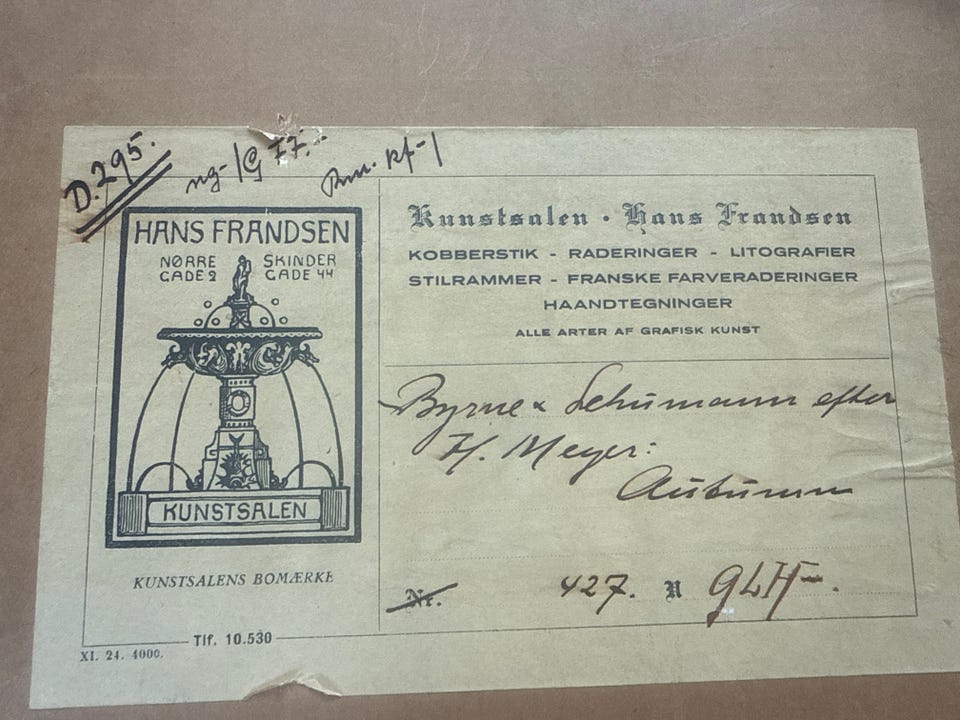 D.295.
ng-/G 77.-
kf-/
HANS FRANDSEN
NØRRE GADE 2
SKINDER GADE 44
KUNSTSALEN
KUNSTSALENS BOMÆRKE
Tlf. 10.530
XI. 24. 4000.
Kunstsalen · Hans Frandsen
KOBBERSTIK - RADERINGER - LITOGRAFIER
STILRAMMER - FRANSKE FARVERADERINGER
HAANDTEGNINGER
ALLE ARTER AF GRAFISK KUNST
Byrne & Schumann efter
H. Meyer:
Autumn
Nr. 427.